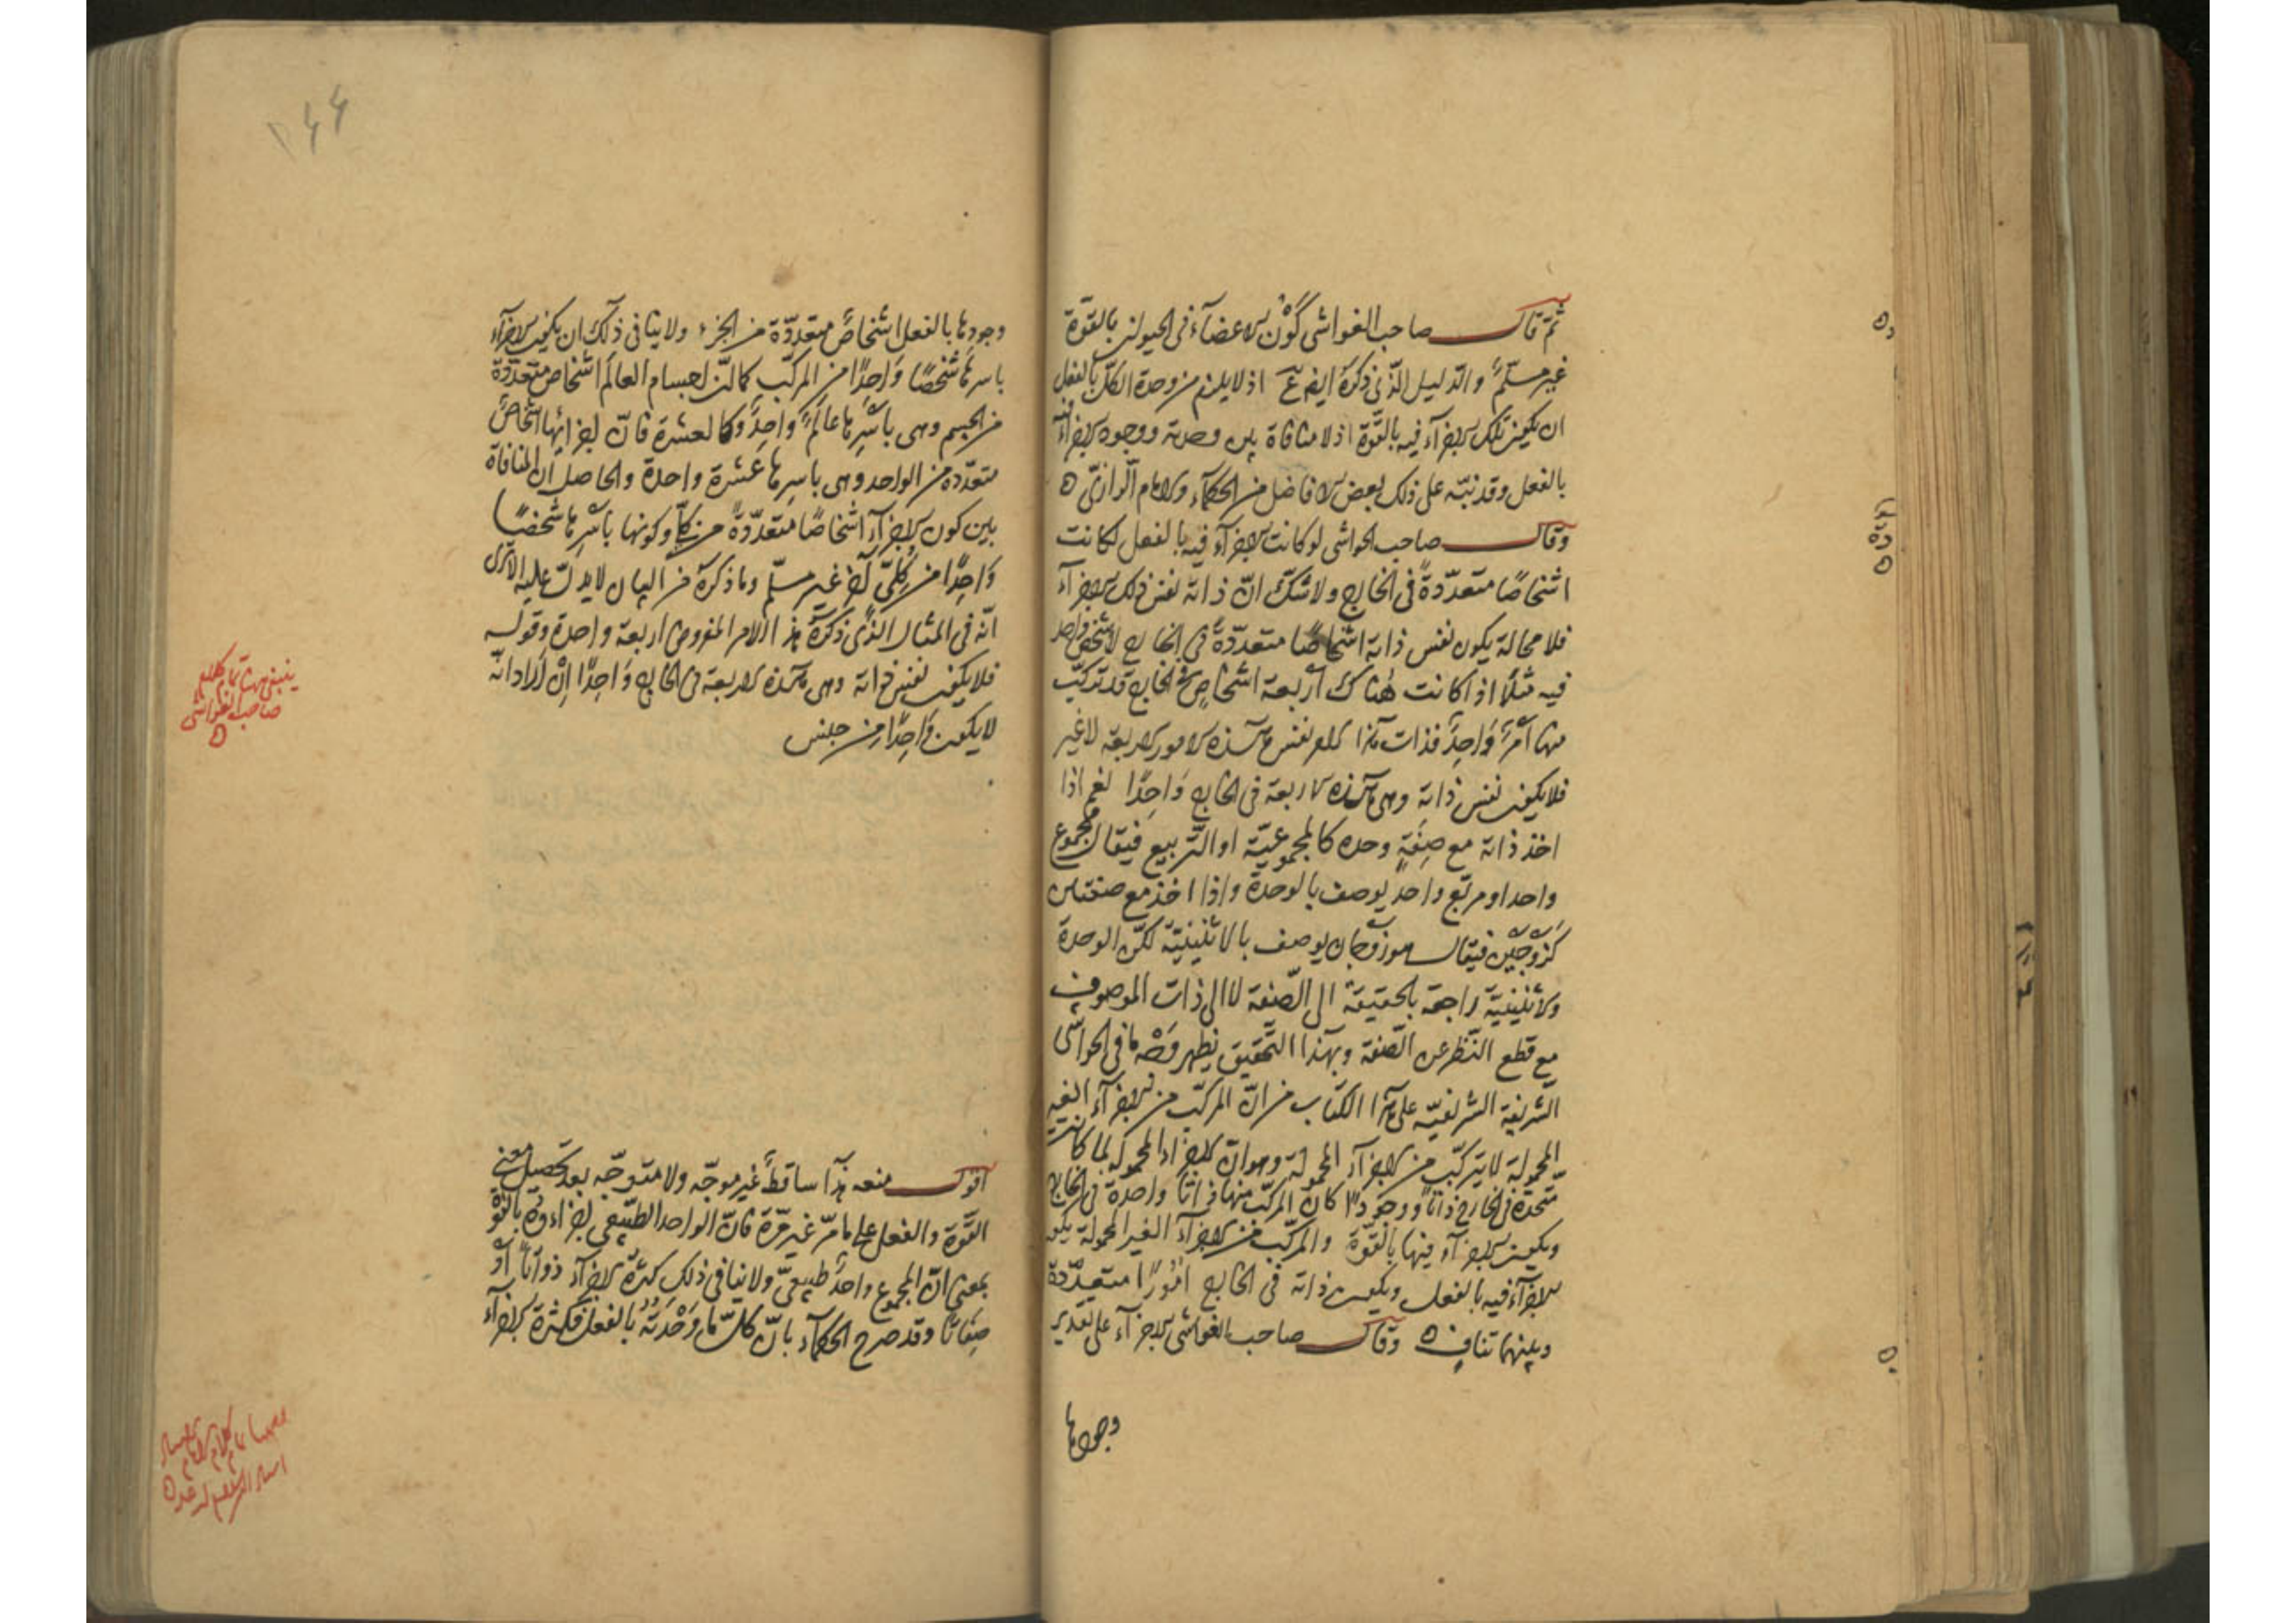 ثمّ قال صاحب الغواشى كَوْن الاعضآء فى الحيوان بالقوّة
غير مسلّم والدّليل الّذى ذكره ايض اذ لا يلزم من وحدة الكلّ بالفعل
ان يكون تلك الاجزآء فيه بالقوّة اذ لا منافاة بين وحدته ووجود الاجزآء فيه
بالفعل وقد نبّه على ذلك بعض الافاضل من الحكمآء والامام الرازىّ ه
وقال صاحب الحواشى لو كانت الاجزآء فيه بالفعل لكانت
اشخاصًا متعدّدةً فى الخارج ولا شكّ انّ ذاته نفس تلك الاجزآء
فلا محالة يكون نفس ذاته اشخاصًا متعدّدةً فى الخارج لا شخص واحد
فيه مثلًا اذا كانت هناك اربعة اشخاصٍ فى الخارج قد تركّب
منها امرٌ واحدٌ فذات هذا نفس هذه الامور الاربعة لا غير
فلا يكون نفس ذاته وهى هذه الاربعة فى الخارج واحدًا نعم اذا
اخذ ذاته مع صِفَةٍ وحده كالمجموعيّة او التّربيع فيقال مجموع
واحد او مربّع واحد يوصف بالوحدة واذا اخذ مع صفتين
كزوجين فيقال هو زوجان يوصف بالاثنينيّة لكنّ الوحدة
والاثنينيّة راجعة بالحقيقة الى الصّفة لا الى ذات الموصوف
مع قطع النّظر عن الصّفة وبهذا التّحقيق يظهر وَجْه ما فى الحواشى
الشّريفة الشّريفيّة على هذا الكتاب من انّ المركّب من الاجزآء الغير
المحمولة لا يتركّب من الاجزآء المحمولة وهو انّ الاجزاء المحمولة لما كانت
متّحدة فى الخارج ذاتًا ووجودًا كان المركّب منها ذاتًا واحدة فى الخارج
ويكون الاجزآء فيها بالقوّة والمركّب من الاجزآء الغير المحمولة يكون
الاجزآء فيه بالفعل ويكون ذاته فى الخارج امُورًا متعدّدة
وبينهما تنافٍ ه وقال صاحب الغواشى الاجزآء على تقدير
وجودها
وجودها بالفعل اشخاصٌ متعدّدة من الجزء ولا ينافى ذلك ان يكون الاجزآء
باسرها شخصًا واحِدًا من المركّب كما انّ اجسام العالم اشخاص متعدّدة
من الجسم وهى باسْرِها عالَمٌ واحِدٌ وكالعشرة فانّ اجزائها اشخاصٌ
متعدّده من الواحد وهى باسرِها عَشرة واحدة والحاصل انّ المنافاة
بين كون الاجزآء اشخاصًا متعدّدةً من كلّىّ وكونها باسْرِها شخصًا
واحِدًا من كلّىّ آخر غير مسلّم وما ذكره من البيان لا يدلّ عليه الا ترى
انّه فى المثال الّذى ذكره هذا الامر المفروض اربعة واحدة وقوله
فلا يكون نفس ذاته وهى هذه الاربعة فى الخارج واحِدًا اِنْ اراد انّه
لا يكون واحِدًا من جنس
اقول منعه هذا ساقطٌ غير موجّه ولا متوجّه بعد تحصيل معنى
القوّة والفعل على ما مرّ غير مرّة فانّ الواحد الطّبيعى اجزاءوه بالقوّة
بمعنى انّ المجموع واحدٌ طبيعىّ ولا ينافى ذلك كثرة الاجزآء ذواتًا او
صِفاتًا وقد صرح الحكمآء بانّ كلّ ما وَحْدَتُهُ بالفعل فكثرة الاجزآء
ينبغى هنا تمام كلام
صاحب الغواشى
ه